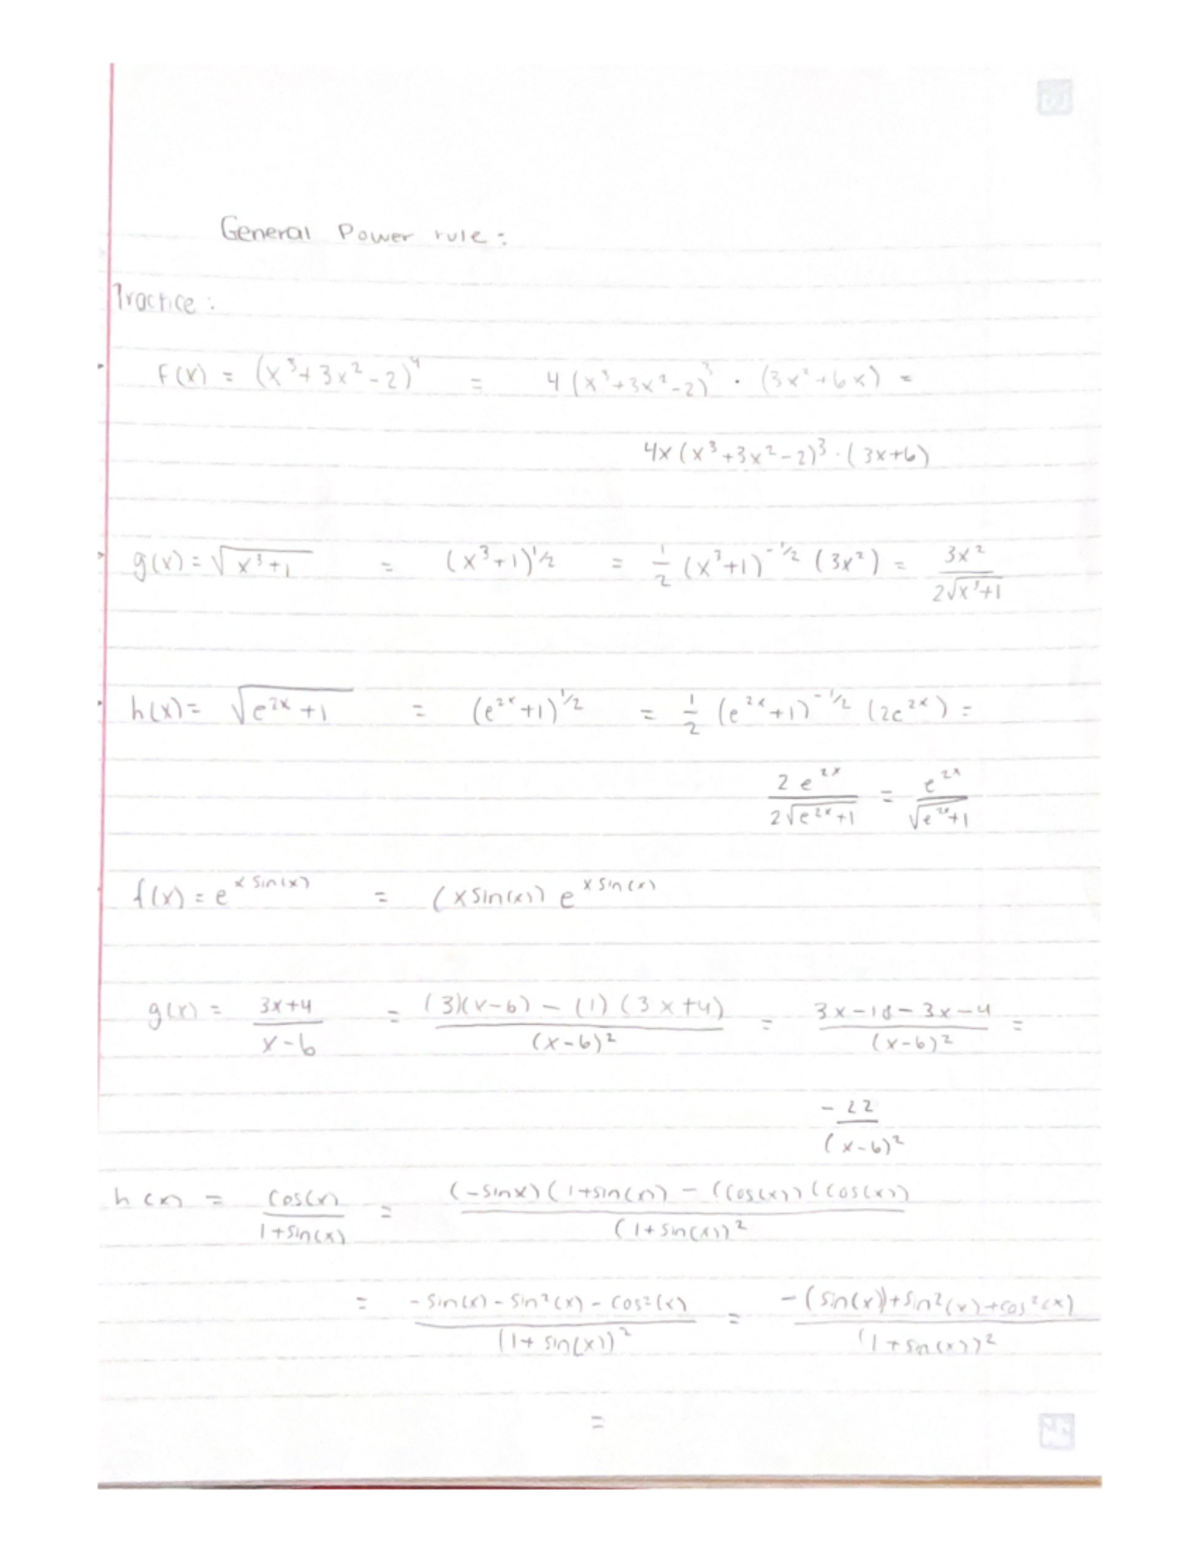 General Power rule:
Practice:
f(x) = (x³+3x²-2)⁴ = 4(x³+3x²-2)³ · (3x²+6x) =
4x(x³+3x²-2)³ · (3x+6)
g(x) = √(x³+1) = (x³+1)^1/2 = 1/2 (x³+1)^-1/2 (3x²) = 3x² / 2√(x³+1)
h(x) = √(e^2x +1) = (e^2x +1)^1/2 = 1/2 (e^2x +1)^-1/2 (2e^2x) =
2e^2x / 2√(e^2x +1) = e^2x / √(e^2x +1)
f(x) = e^x sin(x) = (x sin(x)) e^x sin(x)
g(x) = 3x+4 / x-6 = (3)(x-6) - (1)(3x+4) / (x-6)² = 3x-18-3x-4 / (x-6)² =
-22 / (x-6)²
h(x) = cos(x) / 1+sin(x) = (-sinx)(1+sin(x)) - (cos(x))(cos(x)) / (1+sin(x))²
= -sin(x) - sin²(x) - cos²(x) / (1+sin(x))² = -(sin(x))+sin²(x)+cos²(x) / (1+sin(x))²
=